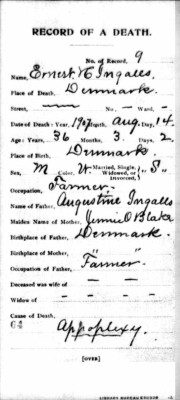 RECORD OF A DEATH.
No. of Record, 9
Name, Ernest H Ingalls.
Place of Death, Denmark.
Street, — No. — Ward, -
Date of Death: Year, 1907 Month, Aug. Day, 14
Age: Years, 36 Months, 3 Days, 2
Place of Birth, Denmark.
Sex, M Color, W Married, Single, Widowed, or Divorced, "S"
Occupation, Farmer.
Name of Father, Augustine Ingalls
Maiden Name of Mother, Jennie O Blake
Birthplace of Father, Denmark.
Birthplace of Mother, "
Occupation of Father, "Farmer"
Deceased was wife of - - -
Widow of - - -
Cause of Death,
64 Appoplexy.
[OVER]
LIBRARY BUREAU